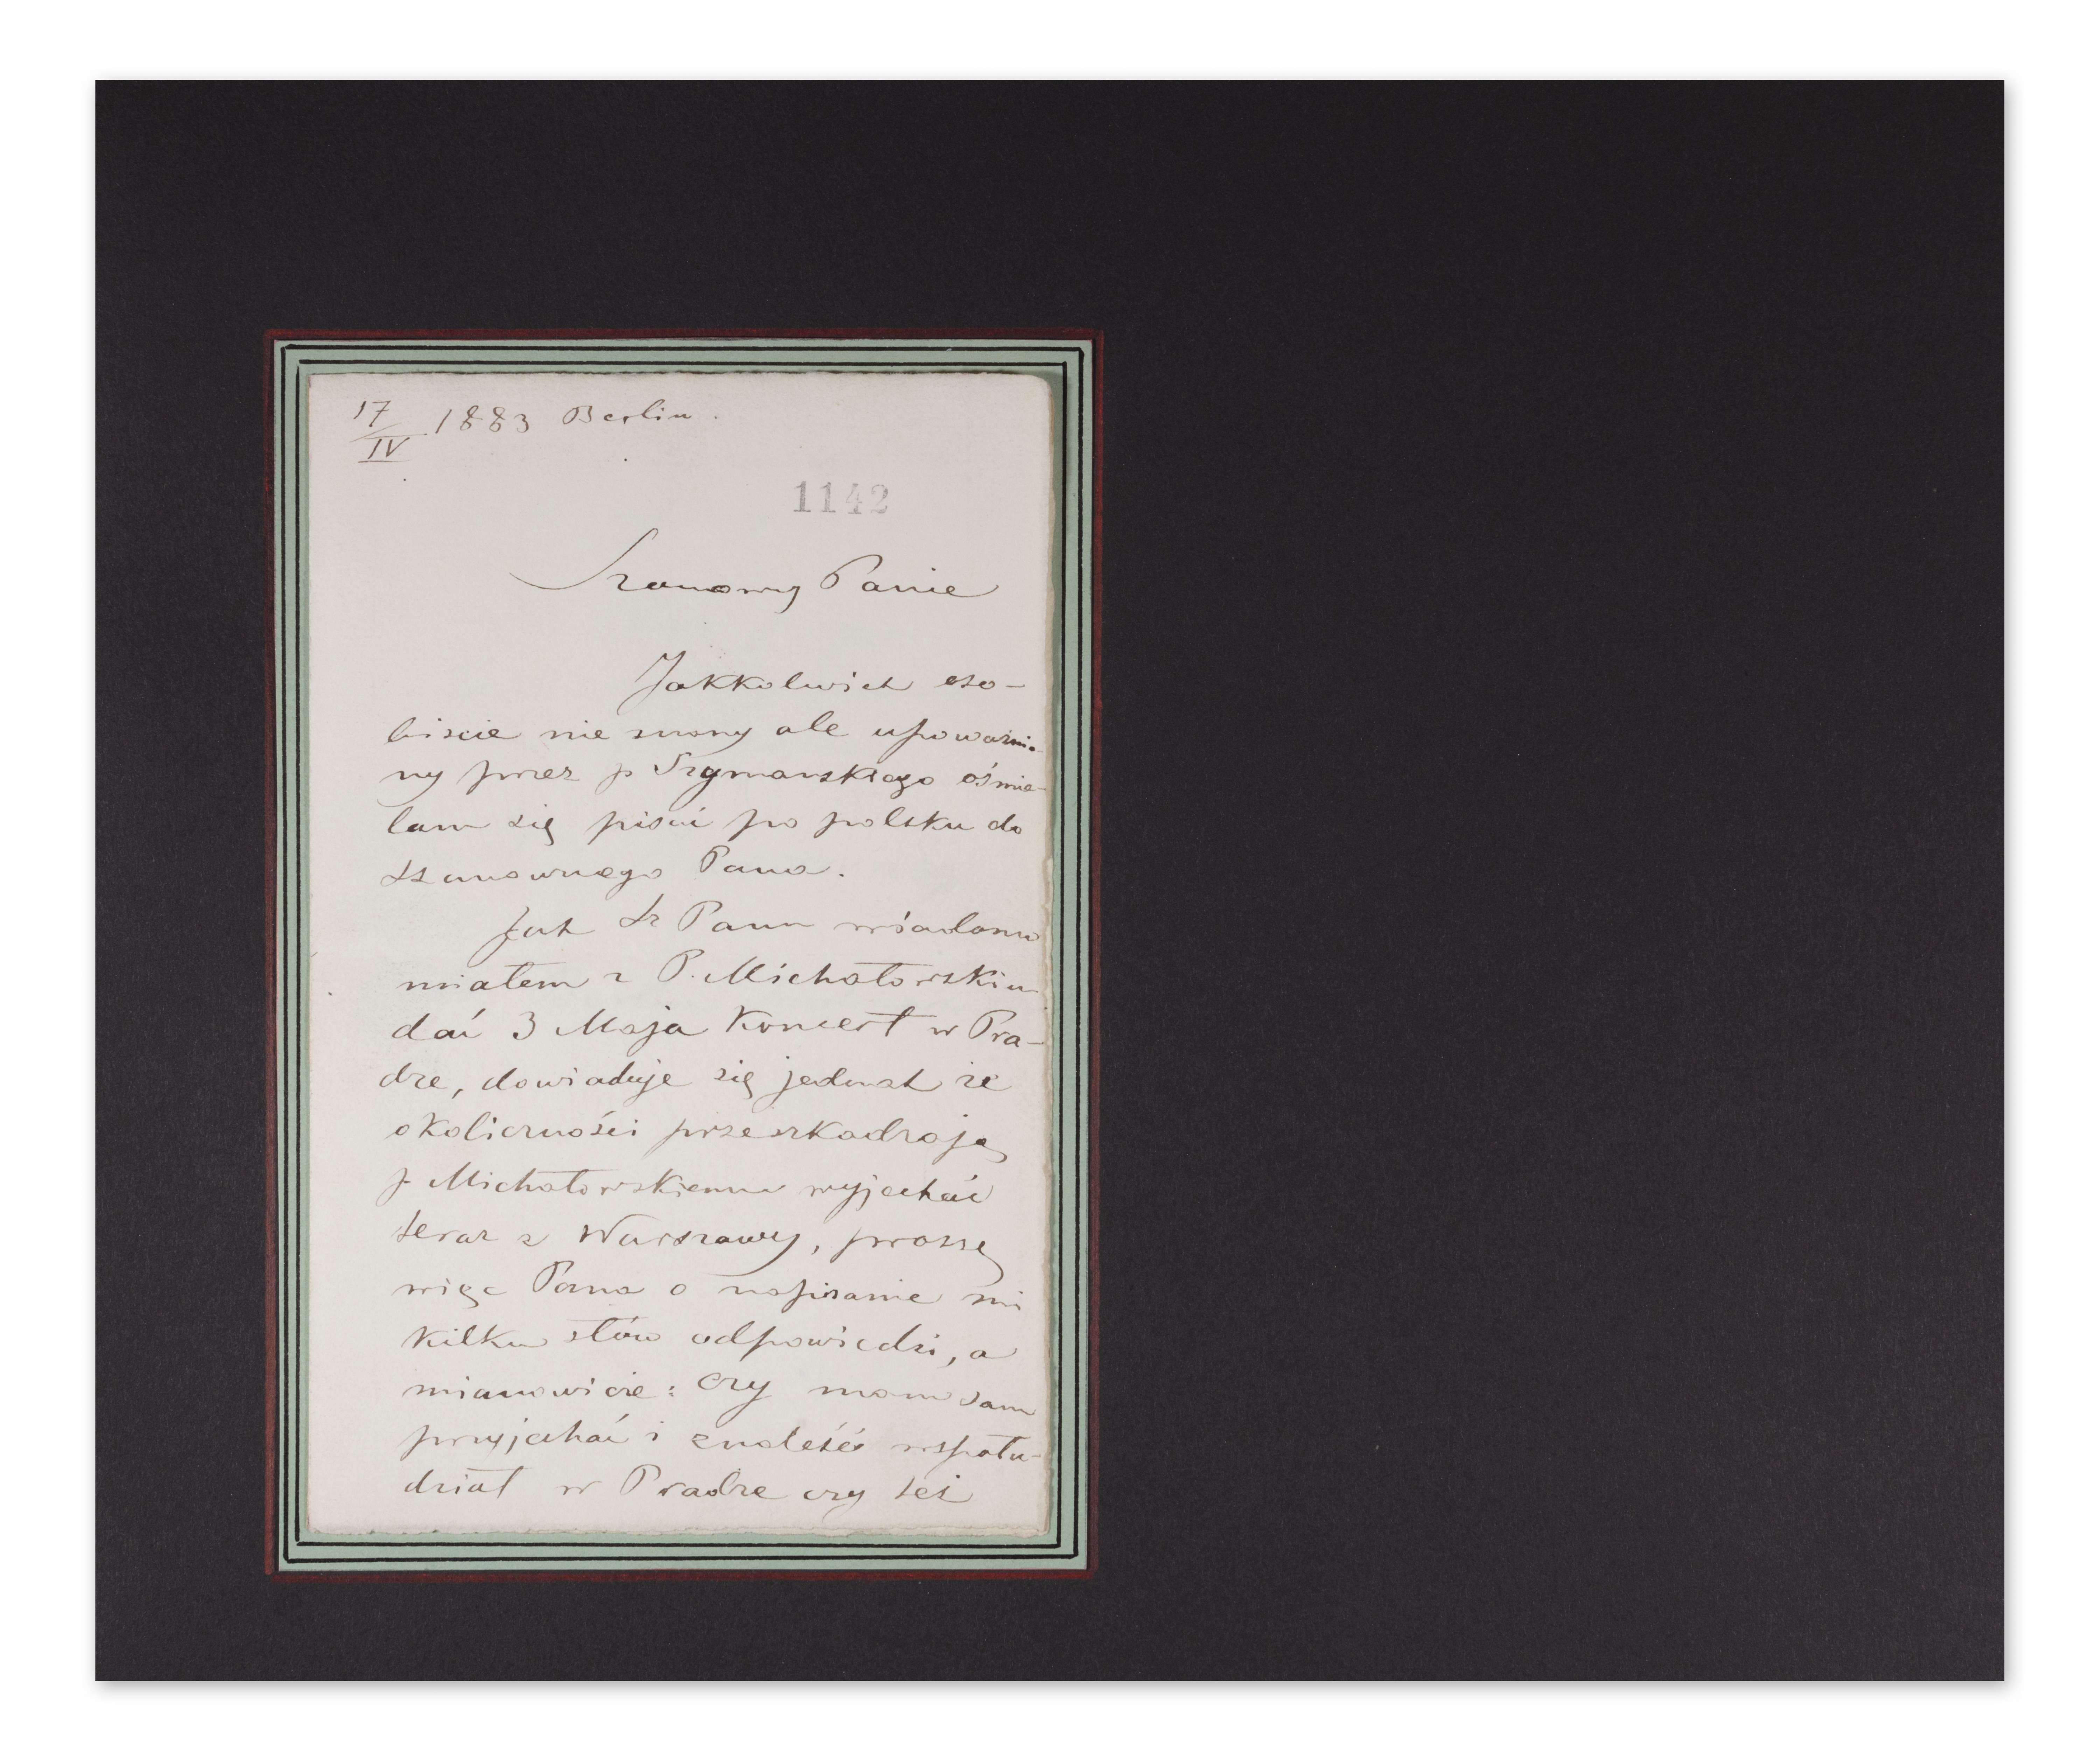 17/IV 1883 Berlin.
1142
Szanowny Panie
Jakkolwiek oso-
biscie nie znany ale upoważnio-
ny przez p Szymanskiego ośmie-
lam się pisać po polsku do
Szanownego Pana.
Jak Sz Panu wiadomo
miałem z P. Michałowskim
dać 3 Maja Koncert w Pra-
dze, dowiaduje się jednak że
okoliczności przeszkadzają
p Michałowskiemu wyjechać
teraz z Warszawy, proszę
więc Pana o napisanie mi
kilku słów odpowiedzi, a
mianowicie: czy mam sam
przyjechać i znaleść współu-
dział w Pradze czy też